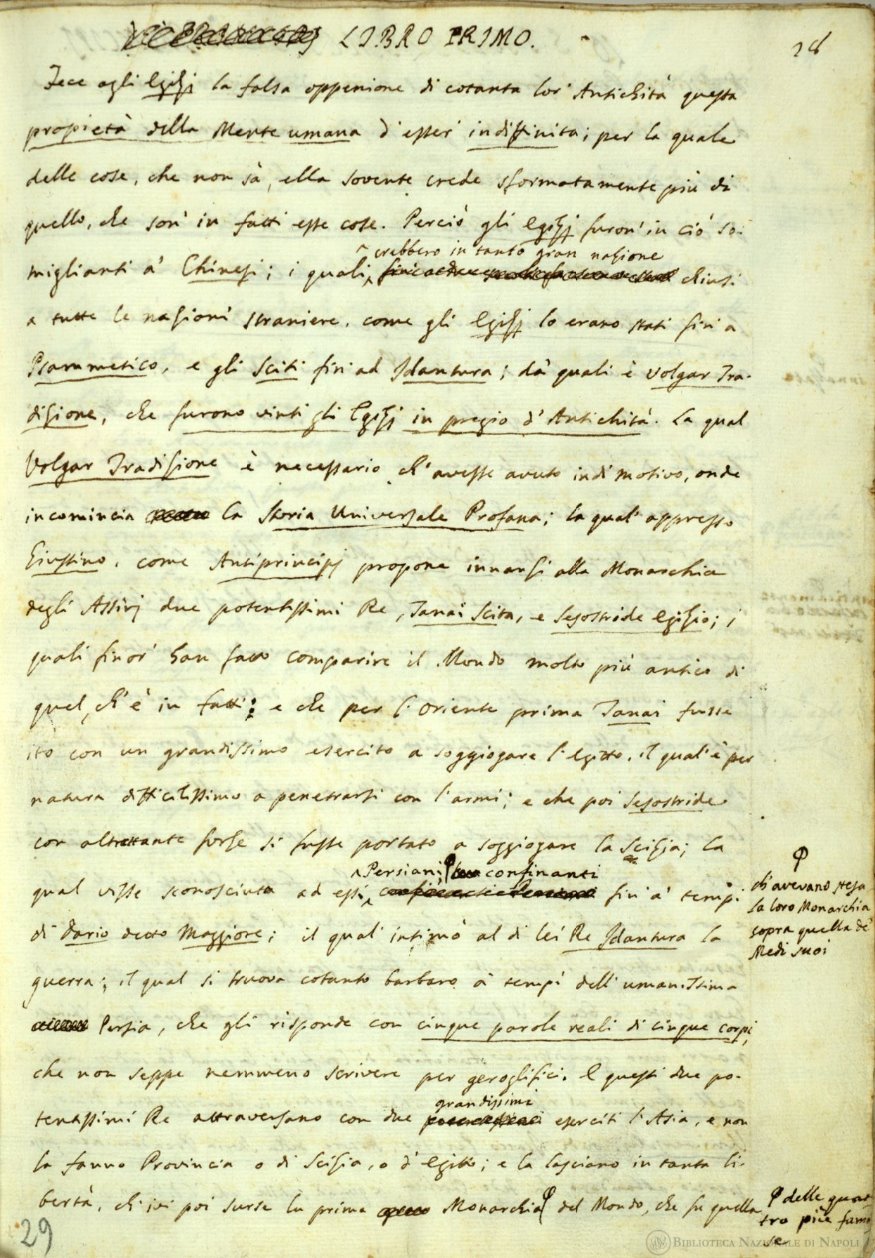 LIBRO PRIMO.
28
Fece agli Egizj la falsa oppenione di cotanta lor' Antichità questa
propietà della Mente umana d'esser' indiffinita; per la quale
delle cose, che non sà, ella sovente crede sformatamente più di
quello, che son' in fatti esse cose. Perciò gli Egizj furon' in ciò so-
crebbero in tanto gran nazione
miglianti a' Chinesi; i quali chiusi
a tutte le nazioni straniere, come gli Egizj lo erano stati fin' a
Psammetico, e gli Sciti fin' ad Idantura; da' quali è volgar Tra-
dizione, che furono vinti gli Egizj in pregio d'Antichità. La qual
Volgar Tradizione è necessario, ch'avesse avuto indi motivo, onde
incomincia la Storia Universale Profana; la qual' appresso
Giustino, come Antiprincipj propone innanzi alla Monarchia
degli Assirj due potentissimi Re, Tanai Scita, e Sesostride Egizio; i
quali finor' han fatto comparire il Mondo molto più antico di
quel, ch'è in fatti: e che per l'Oriente prima Tanai fusse
ito con un grandissimo esercito a soggiogare l'Egitto, il qual' è per
natura difficilissimo a penetrarsi con l'armi; e che poi Sesostride
con altrettante forze si fusse portato a soggiogare la Scizia; la
Persiani, confinanti
qual visse sconosciuta ad essi fin' a' tempi
ch'avevano stesa
la loro Monarchia
sopra quella de'
Medi suoi
di Dario detto Maggiore; il qual' intimò al di lei Re Idantura la
guerra; il qual si truova cotanto barbaro a' tempi dell'umanissima
Persia, che gli risponde con cinque parole reali di cinque corpi,
che non seppe nemmeno scrivere per geroglifici. E questi due po-
grandissimi
tentissimi Re attraversano con due eserciti l'Asia, e non
la fanno Provincia o di Scizia, o d'Egitto; e la lasciano in tanta li-
bertà, ch'ivi poi surse la prima Monarchia del Mondo, che fu quella
delle quat-
tro più famo-
se
29
BIBLIOTECA NAZIONALE DI NAPOLI